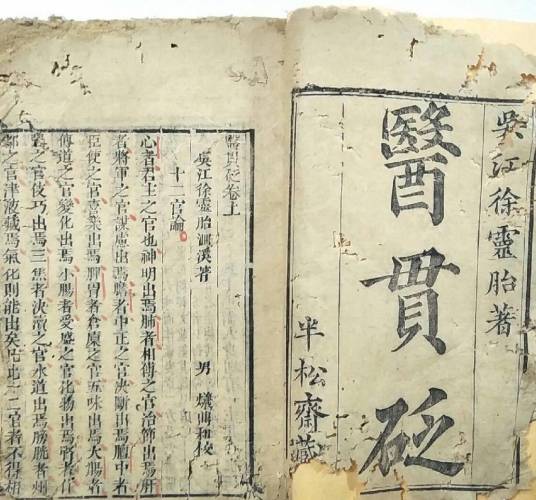 吳江徐靈胎著
醫貫砭
半松齋藏
醫貫砭卷上
吳江徐靈胎洄溪著 男 爔鼎和校
十二官論
心者君主之官也神明出焉肺者相傅之官治節出焉肝
者將軍之官謀慮出焉膽者中正之官決斷出焉膻中者
臣使之官喜樂出焉脾胃者倉廩之官五味出焉大腸者
傳道之官變化出焉小腸者受盛之官化物出焉腎者作
強之官伎巧出焉三焦者決瀆之官水道出焉膀胱者州
都之官津液藏焉氣化則能出矣凡此十二官者不得相